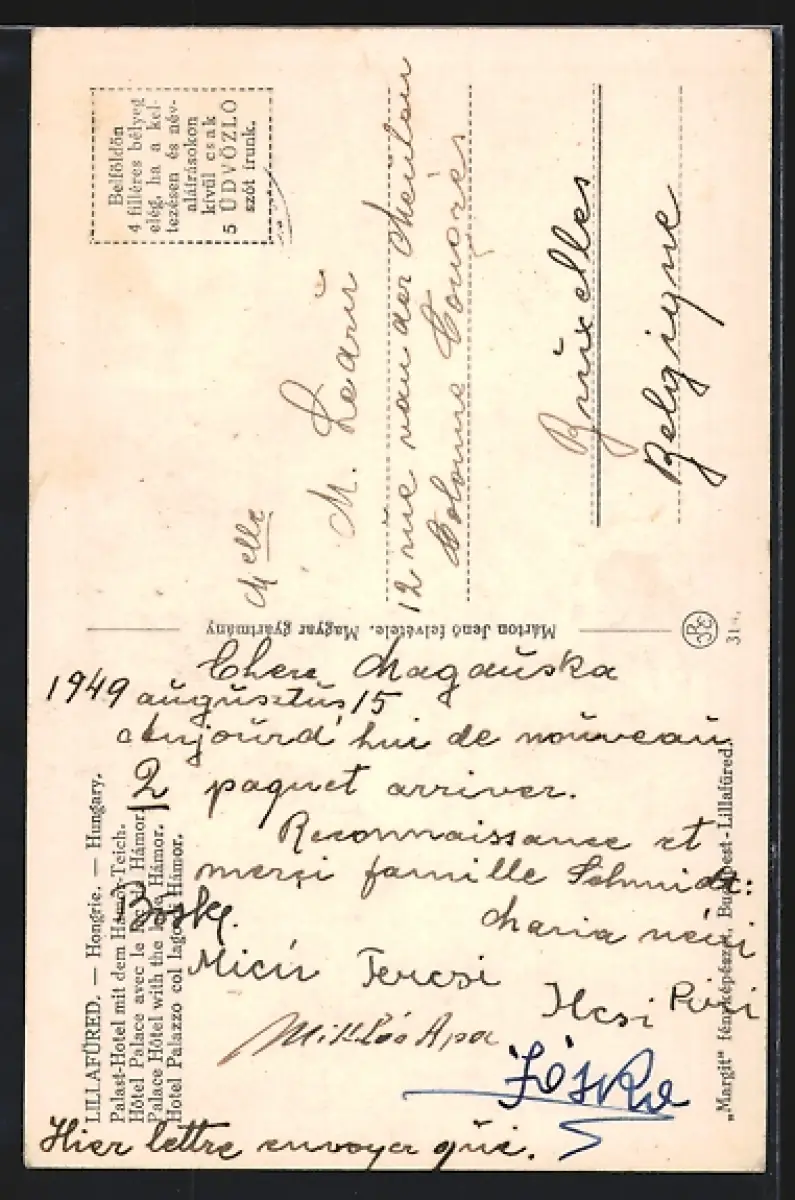 Belföldön
4 filléres bélyeg
elég, ha a kel-
tezésen és név-
aláírásokon
kívül csak
5 ÜDVÖZLŐ
szót írunk.
Melle
M.
12 rue van der Meulen
Colonne Congrès
Bruxelles
Belgique
Márton Jenő felvétele. Magyar gyártmány
31
Chere Magduska
1949 augusztus 15
Aujourd'hui de nouveau
2 paquet arriver.
Reconnaissance et
merci famille Schmidt:
Böske. Maria néni
Micu Tercsi
Ilcsi Piri
Miklós Apa
Jóska
Hier lettre envoyer
LILLAFÜRED. — Hongrie. — Hungary.
Palast-Hotel mit dem Hámor-Teich.
Hôtel Palace avec le lac Hámor.
Palace Hôtel with the lake Hámor.
Hotel Palazzo col lago di Hámor.
„Margit" fényképészet, Budapest-Lillafüred.